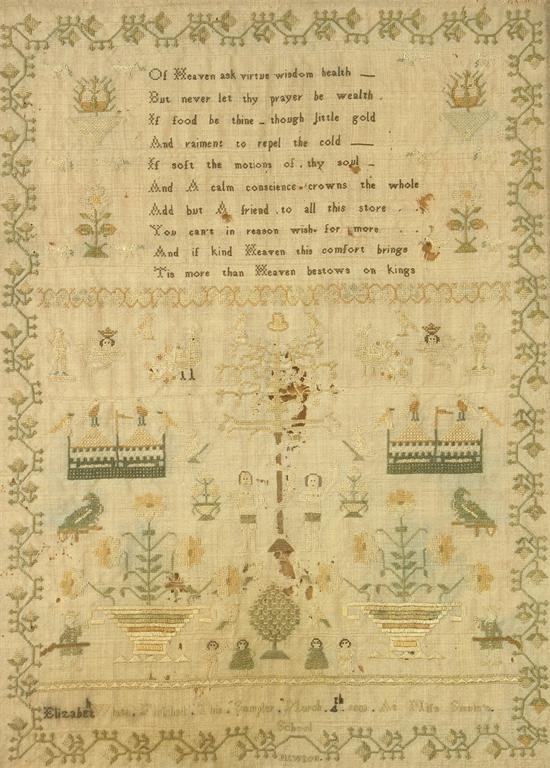 Of Heaven ask virtue wisdom health —
But never let thy prayer be wealth .
If food be thine – though little gold
And raiment to repel the cold —
If soft the motions of . thy soul –
And A calm conscience crowns the whole
Add but A friend . to all this store . . .
You can't in reason wish for more . . .
And if kind Heaven this comfort brings
Tis more than Heaven bestows on kings
Elizabeth White . Finished . This . Sampler . March . At Miss
School